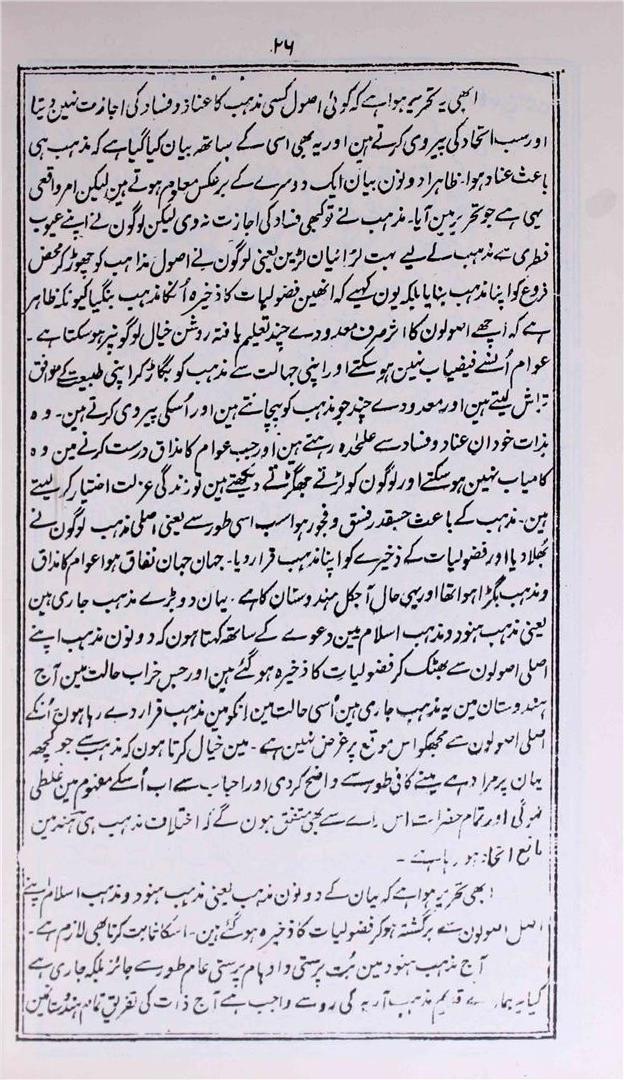 ۲۶
ابھی یہ تحریر ہوا ہے کہ کوئی اصول کسی مذہب کا عناد و فساد کی اجازت نہین دیتا
اور سب اتحاد کی پیروی کرتے ہین اور یہ بھی اسی کے ساتھ بیان کیا گیا ہے کہ مذہب ہی
باعث عناد ہوا۔ ظاہرا دونون بیان ایک دوسرے کے برعکس معلوم ہوتے ہین لیکن امر واقعی
یہی ہے جو تحریر مین آیا۔ مذہب نے تو کبھی فساد کی اجازت نہ دی لیکن لوگون نے اپنے عیوب
فطری سے مذہب کے لیے بہت لڑائیان لڑین یعنی لوگون نے اصول مذاہب کو چھوڑ کر محض
فروع کو اپنا مذہب بنایا بلکہ یون کہیے کہ انھین فضولیات کا ذخیرہ اُنکا مذہب بنگیا کیونکہ ظاہر
ہے کہ اچھے اصولون کا اثر صرف معدودے چند تعلیم یافتہ روشن خیال لوگونپر ہو سکتا ہے۔
عوام اُنسے فیضیاب نہین ہو سکتے اور اپنی جہالت سے مذہب کو بگاڑ کر اپنی طبیعت کے موافق
تراش لیتے ہین اور معدودے چند جو مذہب کو پہچانتے ہین اور اُسکی پیروی کرتے ہین۔ وہ
بذات خود ان عناد و فساد سے علٰحدہ رہتے ہین اور جب عوام کا مذاق درست کرنے مین وہ
کامیاب نہین ہو سکتے اور لوگون کو لڑتے جھگڑتے دیکھتے ہین تو زندگی عزلت اختیار کر لیتے
ہین۔ مذہب کے باعث جسقدر فسق و فجور ہوا سب اسی طور سے یعنی اصلی مذہب لوگون نے
بھلا دیا اور فضولیات کے ذخیرے کو اپنا مذہب قرار دیا۔ جہان جہان نفاق ہوا عوام کا مذاق
و مذہب بگڑا ہوا تھا اور یہی حال آجکل ہندوستان کا ہے۔ یہان دو بڑے مذہب جاری ہین
یعنی مذہب ہنود و مذہب اسلام مین دعوے کے ساتھ کہتا ہون کہ دونون مذہب اپنے
اصلی اصولون سے بھٹک کر فضولیات کا ذخیرہ ہو گئے ہین اور جس خراب حالت مین آج
ہندوستان مین یہ مذہب جاری ہین اُسی حالت مین انکو مین مذہب قرار دے رہا ہون اُنکے
اصلی اصولون سے مجھکو اس موقع پر غرض نہین ہے۔ مین خیال کرتا ہون کہ مذہب سے جو کچھہ
یہان پر مراد ہے مینے کافی طور سے واضح کر دی اور احباب سے اب اُسکے مفہوم مین غلطی
نہوگی اور تمام حضرات اس راے سے بھی متفق ہون گے کہ اختلاف مذہب ہی ہند مین
مانع اتحاد ہو رہا ہے۔
ابھی تحریر ہوا ہے کہ یہان کے دونون مذہب یعنی مذہب ہنود و مذہب اسلام اپنے
اصل اصولون سے برگشتہ ہو کر فضولیات کا ذخیرہ ہو گئے ہین۔ اسکا ثابت کرنا بھی لازم ہے۔
آج مذہب ہنود مین بُت پرستی و اوہام پرستی عام طور سے جائز بلکہ جاری ہے
کیا یہ ہمارے قدیم مذہب آریہ کی رو سے واجب ہے آج ذات کی تفریق تمام ہندوستانین